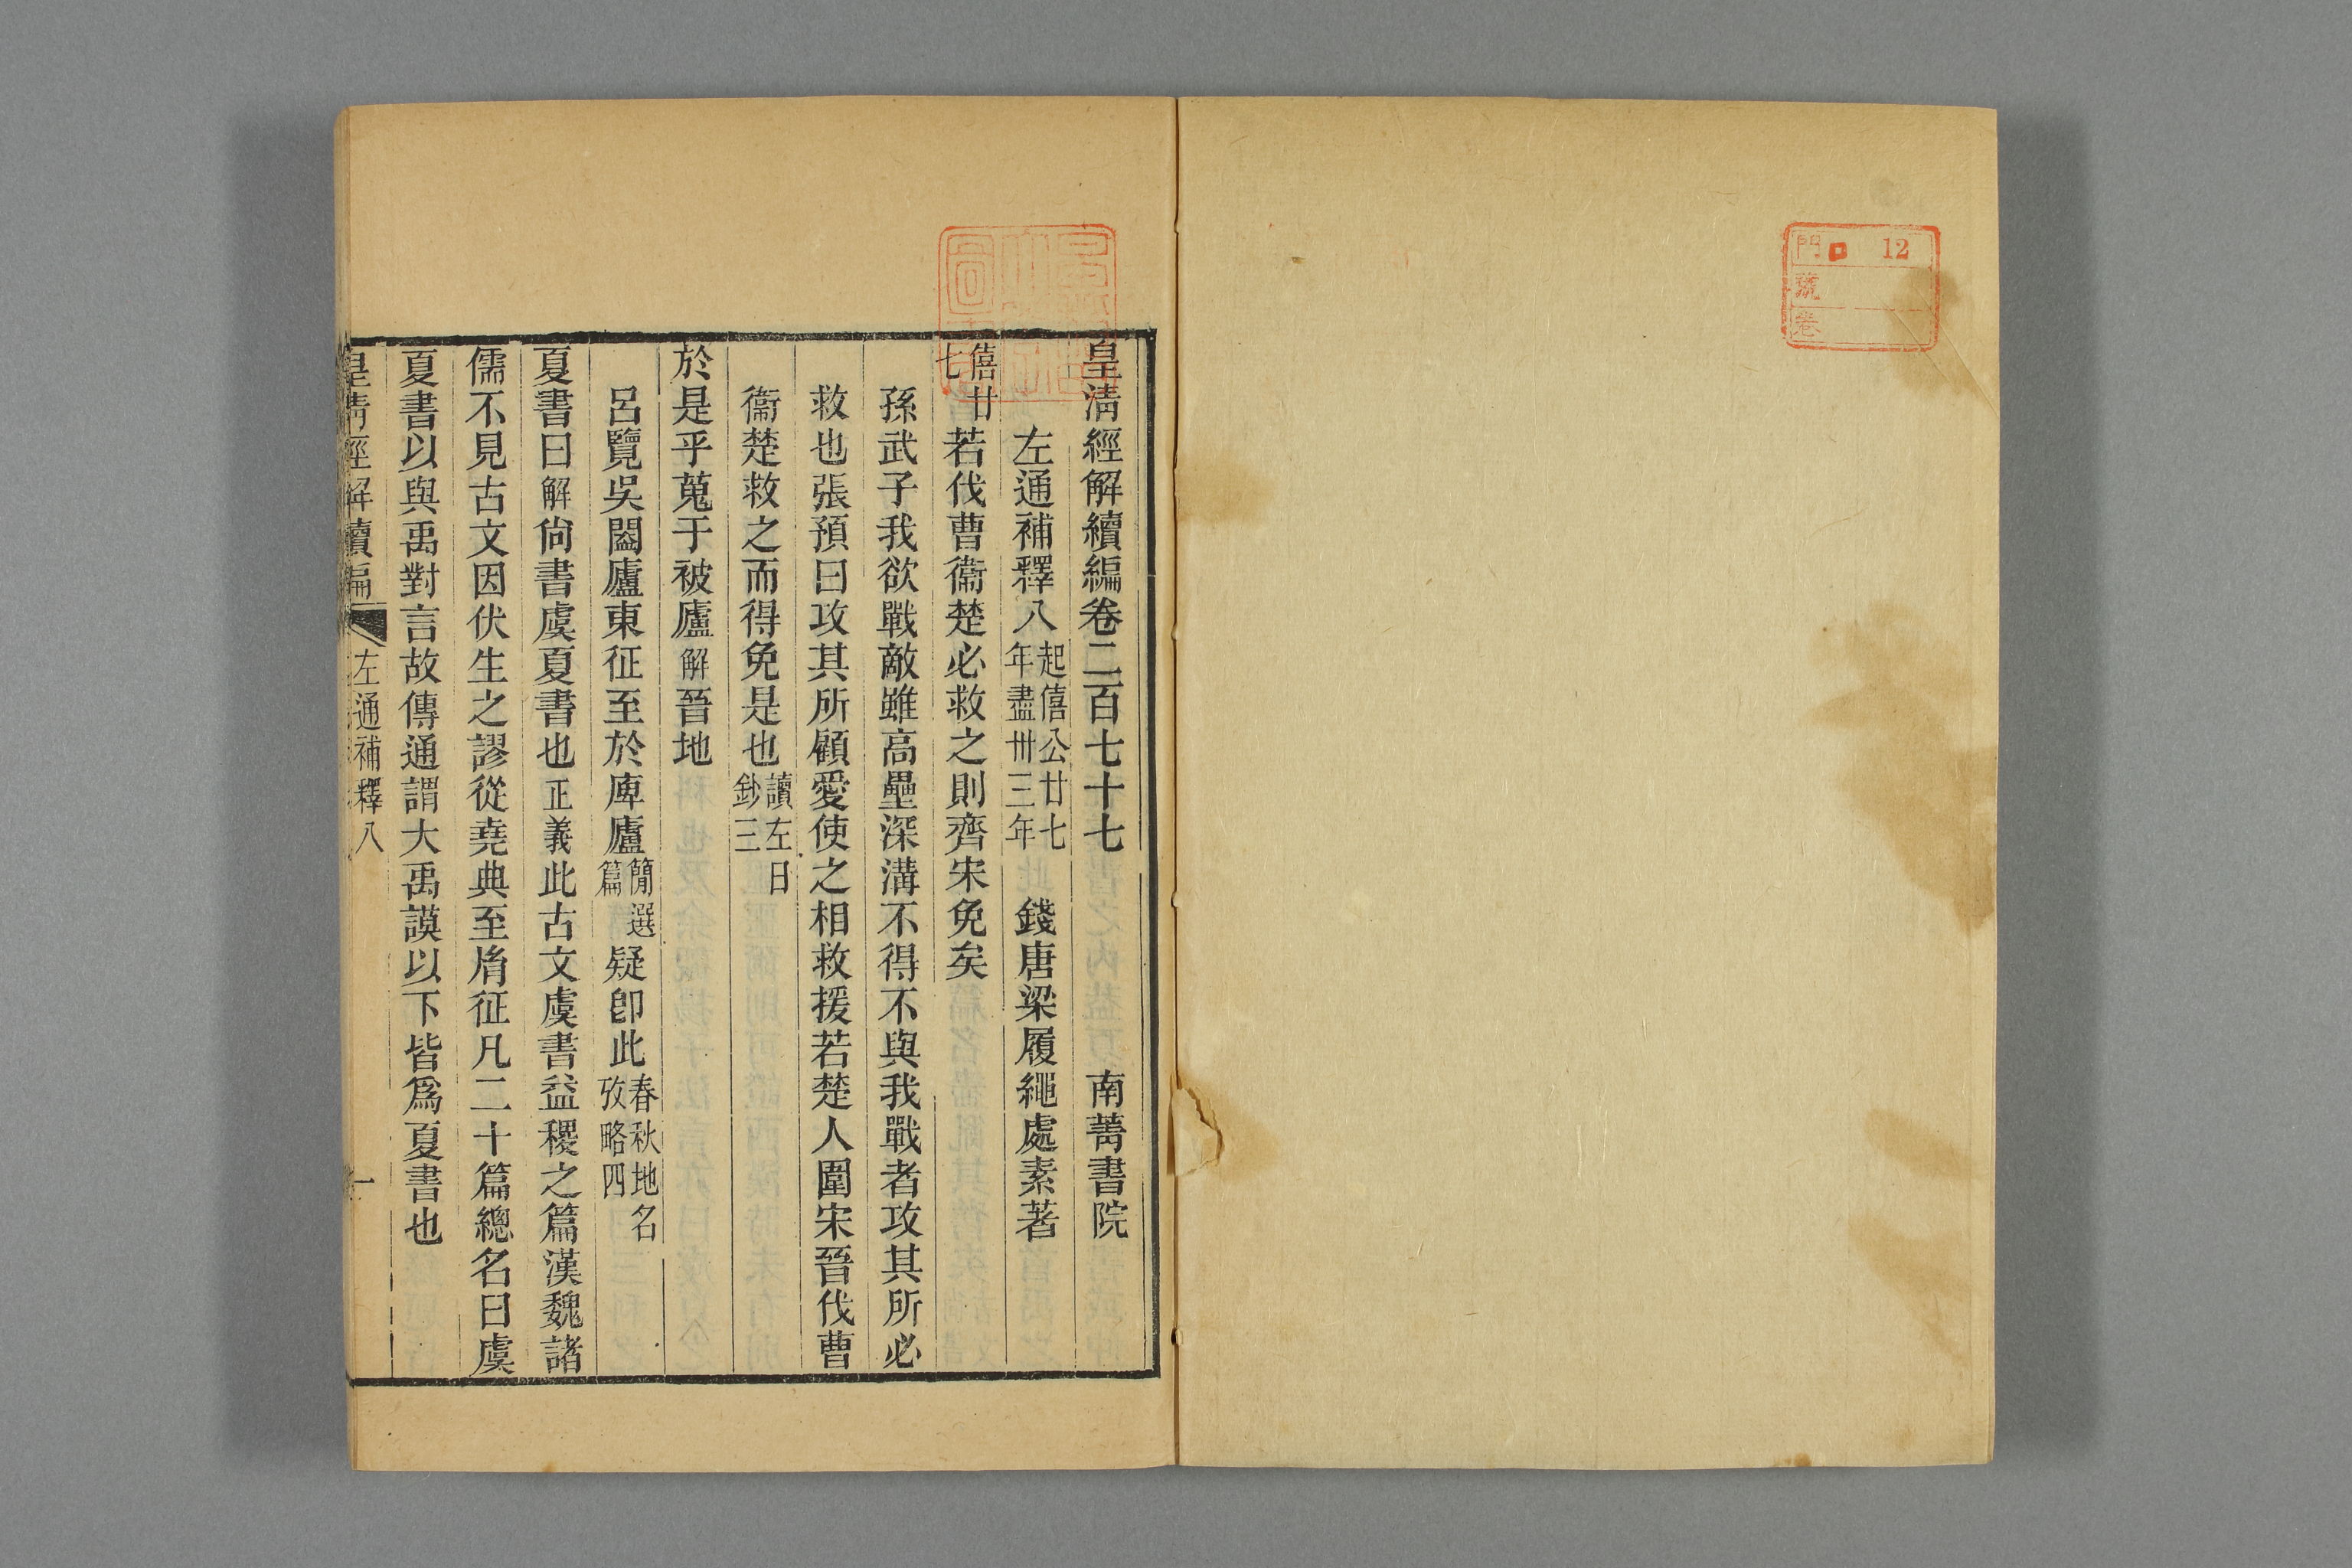 門 12
號
卷
皇淸經解續編卷二百七十七 南菁書院
左通補釋八 起僖公廿七年盡卅三年 錢唐梁履繩處素著
僖廿七 若伐曹衞楚必救之則齊宋免矣
孫武子我欲戰敵雖高壘深溝不得不與我戰者攻其所必
救也張預曰攻其所顧愛使之相救援若楚人圍宋晉伐曹
衞楚救之而得免是也 讀左日鈔三
於是乎蒐于被廬 解晉地
呂覽吳闔廬東征至於庳廬 簡選篇 疑卽此 春秋地名攷略四
夏書曰 解尙書虞夏書也 正義此古文虞書益稷之篇漢魏諸
儒不見古文因伏生之謬從堯典至胤征凡二十篇總名曰虞
夏書以與禹對言故傳通謂大禹謨以下皆爲夏書也
皇淸經解續編 左通補釋八 一